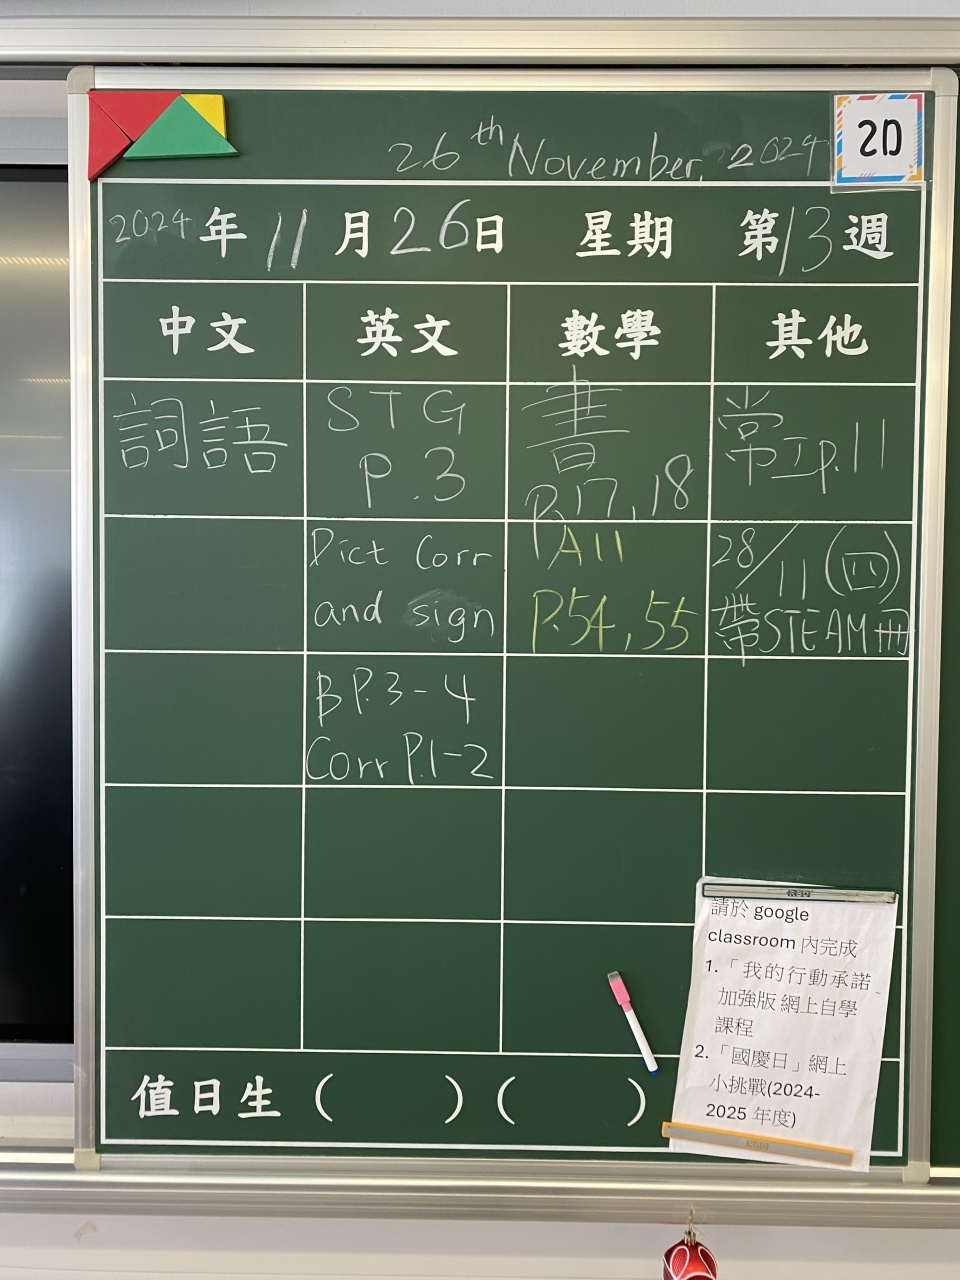 26th November, 2024
2D
2024年11月26日 星期 第13週
中文 英文 數學 其他
詞語
STG
P.3
書
P.17, 18
常工p.11
Dict Corr
and sign
A11
P.54, 55
28/11 (四)
帶STEAM冊
B P.3-4
Corr P.1-2
請於 google
classroom 內完成
1.「我的行動承諾
加強版 網上自學
課程
2.「國慶日」網上
小挑戰(2024-
2025 年度)
值日生 ( ) ( )